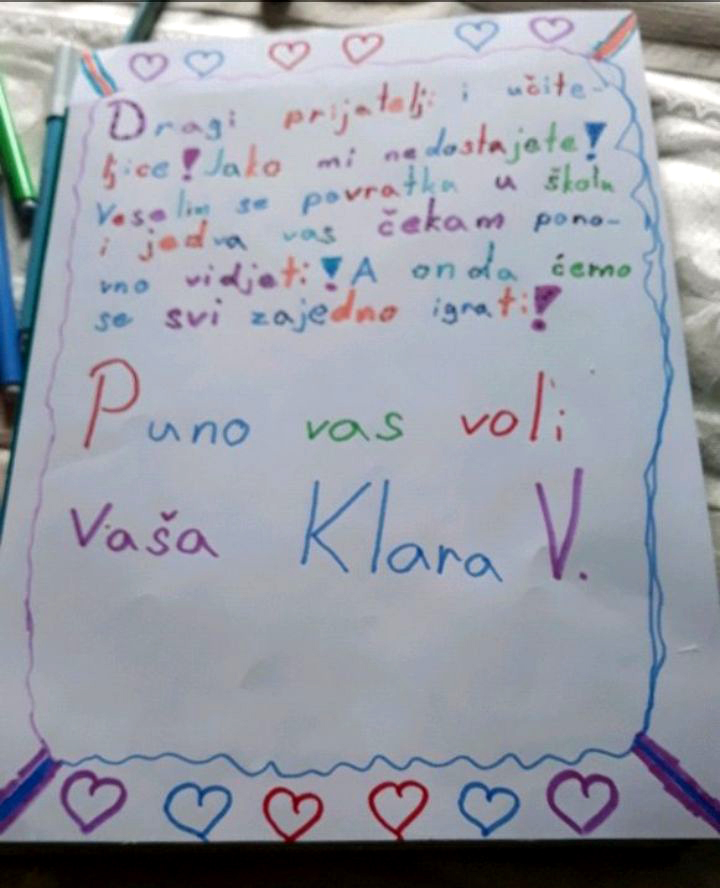 Dragi prijatelji i učite-
ljice! Jako mi nedostajete!
Veselim se povratku u školu
i jedva vas čekam pono-
vno vidjeti! A onda ćemo
se svi zajedno igrati!
Puno vas voli
Vaša Klara V.